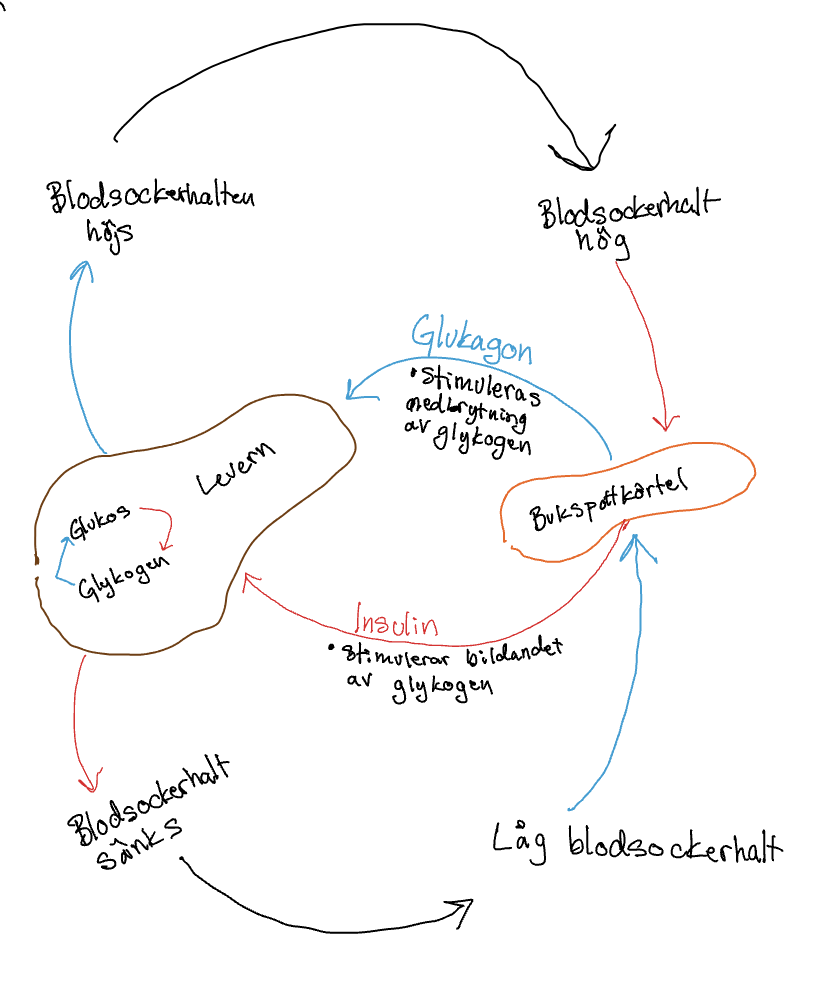 Blodsockerhalten
höjs
Blodsockerhalt
hög
Glukagon
• Stimuleras
nedbrytning
av glykogen
Levern
Glukos
Glykogen
Bukspottkörtel
Insulin
• Stimulerar bildandet
av glykogen
Blodsockerhalt
sänks
Låg blodsockerhalt